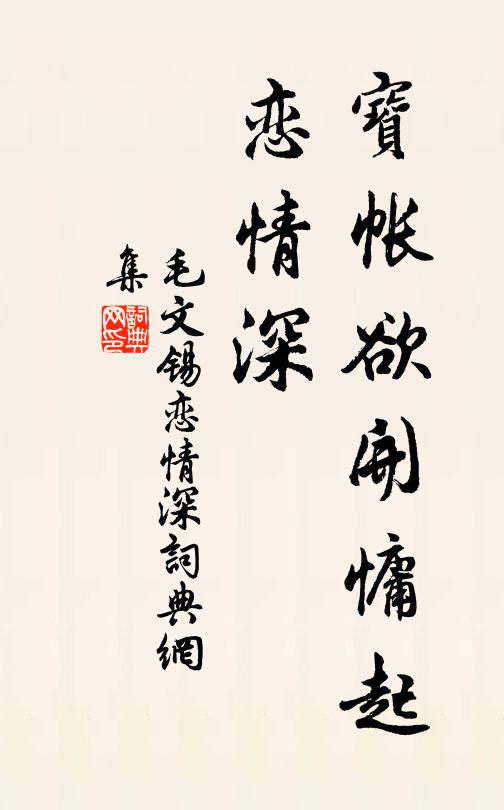 寶帳欲開慵起
恋情深
毛文錫恋情深詞典網
集
詞典
网印